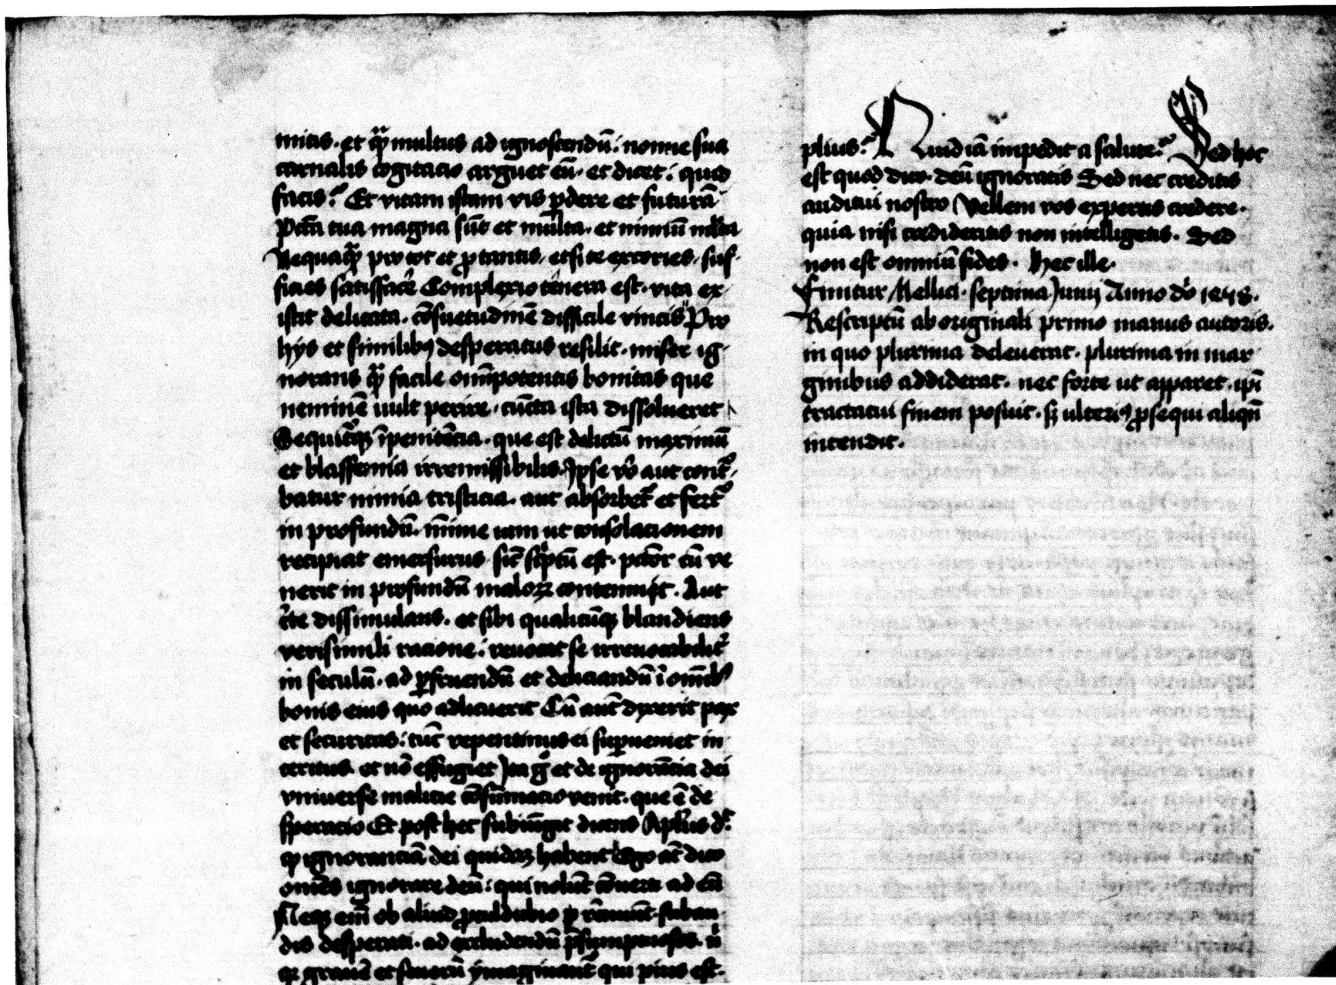 mitis. et qͣ multus ad ignoscendū. nonne sua
carnalis cogitacio arguet eū. et dicet. quid
facis? Et vitam istam vis ꝑdere et futurā
Pctā tua magna sūt et multa. et nimiū
Nequaqͣ pro tot et ꝓ tantis. etsi te excories. suf-
ficies satisfacē Complexio tenera est. vita ex-
istit delicata. cōsuetudinē difficile vincis Pro
hijs et similibꝰ desperatus resilit. miser ig-
norans qͣ facile omīpotentis bonitas que
neminē uult perire. cūcta ista dissolueret
Sequitᷣqꝫ īpenitēcia. que est delictū maximū
et blasfemia irremissibilis. Ipse vͦ aut contᷣ-
batur nimia tristicia. aut absorbetᷣ et fertᷣ
in profundū. mīme iam ut consolacionem
recipiat emersurus. sic̄ scͥptū est. pctōr cū ve
nerit in profundū maloꝝ contemnit. Aut
cͭe dissimulans. et sibi qualicūqꝫ blandiens
verisimili racione. reuocat se irreuocabilitᷣ
in seculū. ad ꝑfruendū et deliciandū ī omībꝰ
bonis eius quo adlicuerit Cū aut̄ dixerit pax
et securitas. tūc repentinus ei suꝑueniet in
teritus. et nō effugiet Ita gͦ et de ignorātia dei
vniuerse malicie cōsumacio venit. que ē de
speracio Et post hec subiūgit dicens Apl̄us dt̄.
ꝙ ignoranciā dei quidaꝫ habent Ego at̄ dico
omēs ignorare deū. qui nolūt cōuerti ad eū
Neqꝫ em̄ ob aliud ꝓculdubio
dis desperati. ad
qꝫ grauē et seuerū ymaginant̄ qui pius est.
plius? Quid iā impedit a salute? Sed hoc
est quod dico. deū ignoratis Sed nec creditis
auditui nostro Vellem vos expertis credere.
quia nisi credideritis non intelligetis. Sed
non est omniū fides. hec ille.
Finitur Mellici. septima Junij Anno dō 1458.
Rescriptū ab originali primo manus autoris.
in quo plurima deleuerat. plurima in mar
ginibus addiderat. nec forte ut apparet. ipi
tractatui finem posuit. si ulteriꝰ ꝓsequi aliqn̄
intendit.